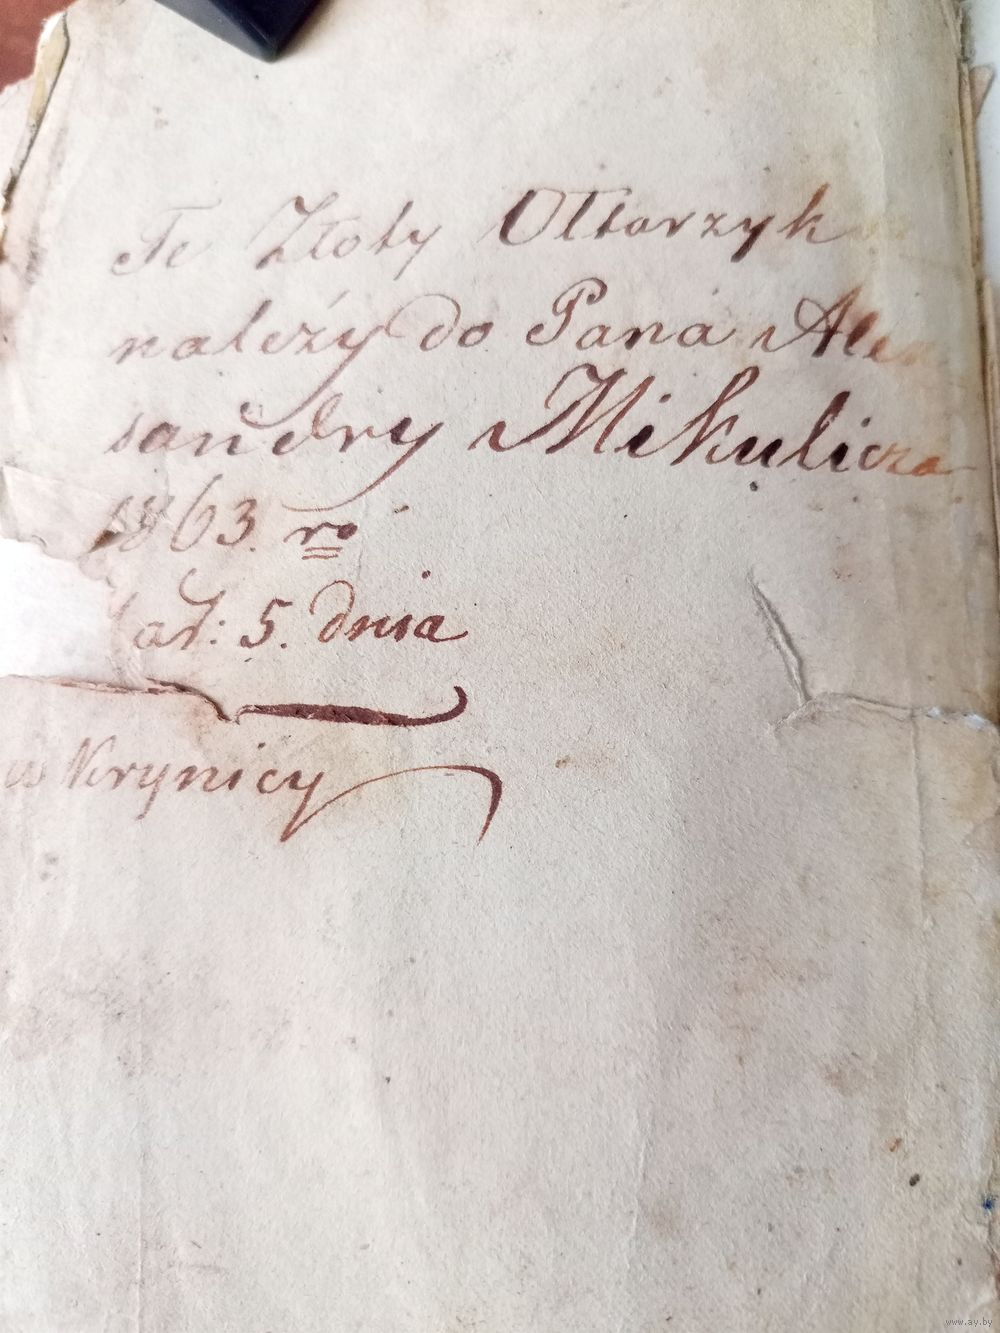 Te Złoty Ołtarzyk
należy do Pana Alex
sandry Mikulicza
1863. ro
5. dnia
w Krynicy
www.ay.by